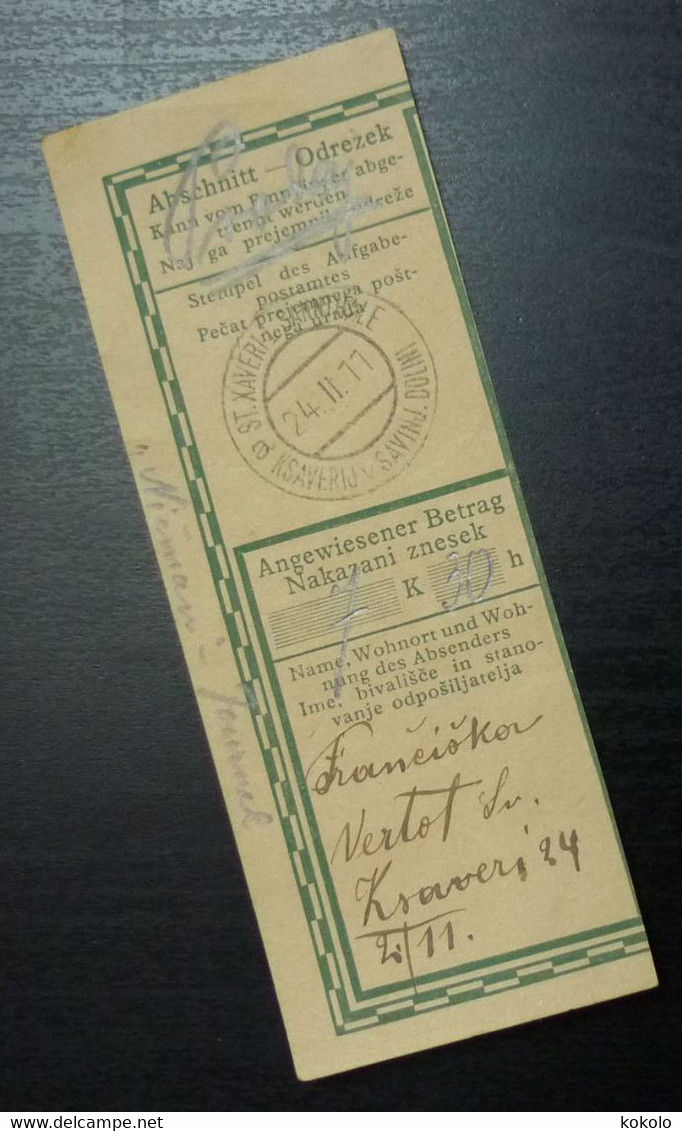 Abschnitt — Odrezek
Kann vom Empfänger abge-
trennt werden
Naj ga prejemnik odreže
Stempel des Aufgabe-
postamtes
Pečat prejemnega pošt-
nega urada
ST. XAVERI
KSAVERIJ v SAVINJ. DOLINI
24.II.11
Angewiesener Betrag
Nakazani znesek
7 K 30 h
Name, Wohnort und Woh-
nung des Absenders
Ime, bivališče in stano-
vanje odpošiljatelja
Frančiška
Vertot Sv.
Ksaveri 24
2/11.
Journal
delcampe.net
kokolo